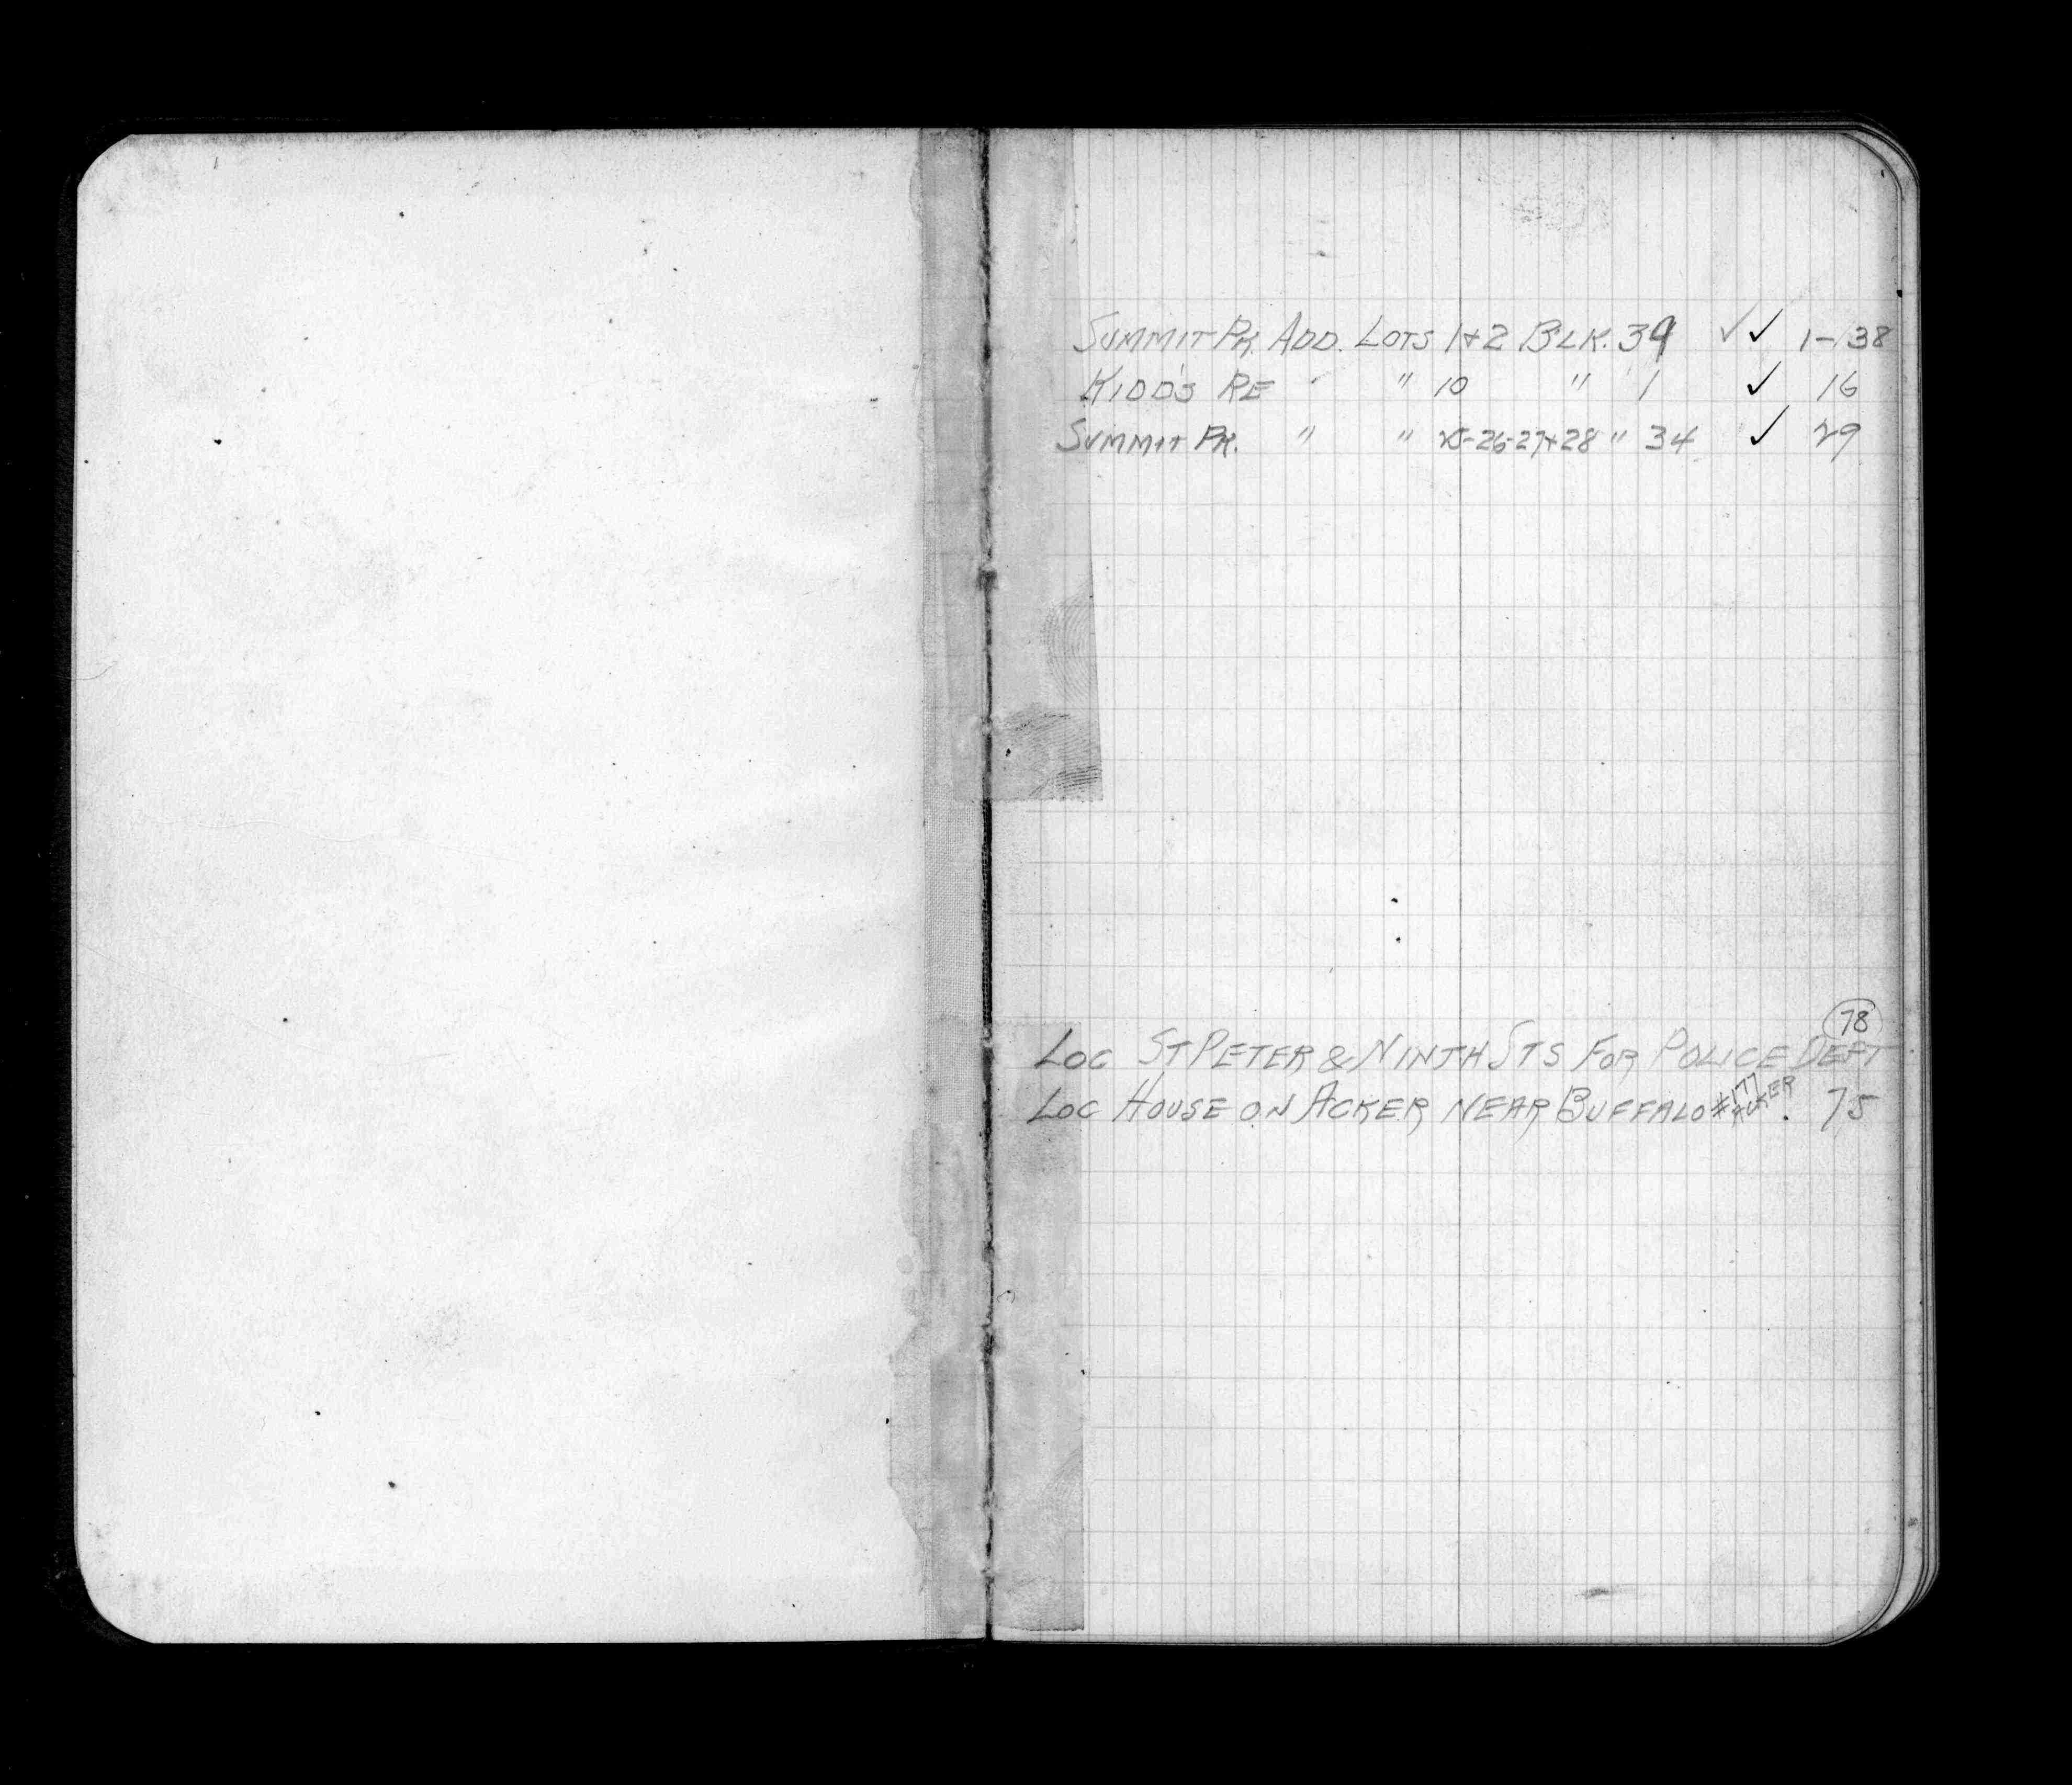 SUMMIT PK. ADD. LOTS 1+2 BLK. 39 ✓✓ 1-38
KIDD'S RE " 10 " 1 ✓ 16
SUMMIT PK. " " 25-26-27+28 " 34 ✓ 29
78
LOC ST PETER & NINTH STS FOR POLICE DEPT
LOC HOUSE ON ACKER NEAR BUFFALO #177 ACKER. 75